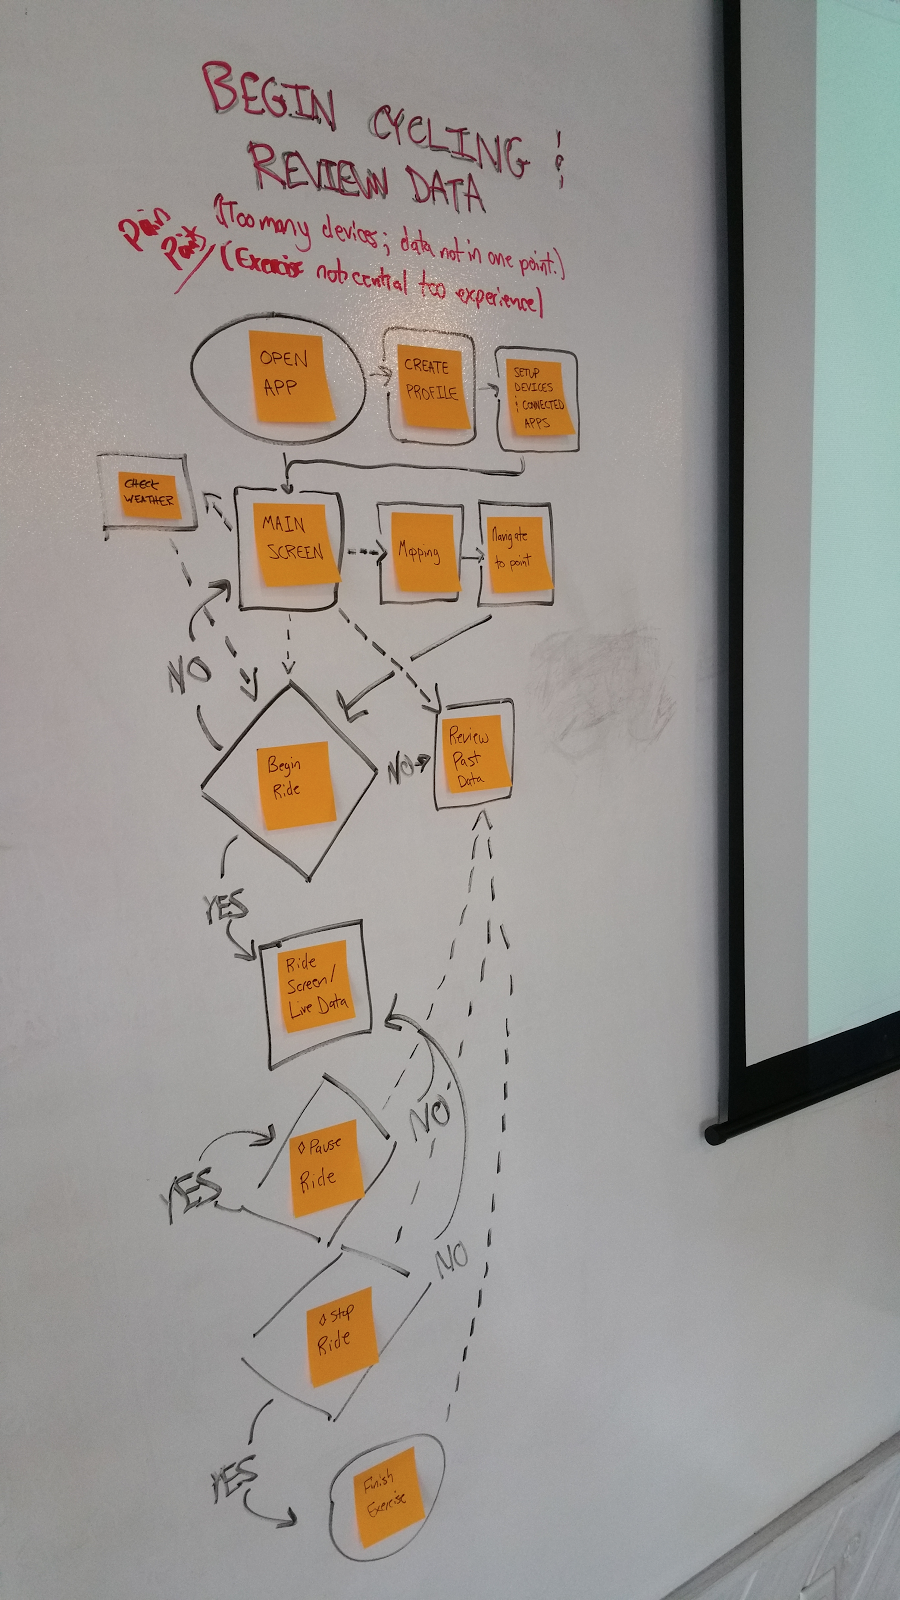 BEGIN CYCLING &
REVIEW DATA
Pain
Points
(Too many devices; data not in one point.)
(Exercise not central too experience)
OPEN
APP
CREATE
PROFILE
SETUP
DEVICES
& CONNECTED
APPS
CHECK
WEATHER
MAIN
SCREEN
Mapping
Navigate
to point
NO
Begin
Ride
NO
Review
Past
Data
YES
Ride
Screen/
Live Data
NO
YES
◊ Pause
Ride
NO
◊ Stop
Ride
YES
Finish
Exercise